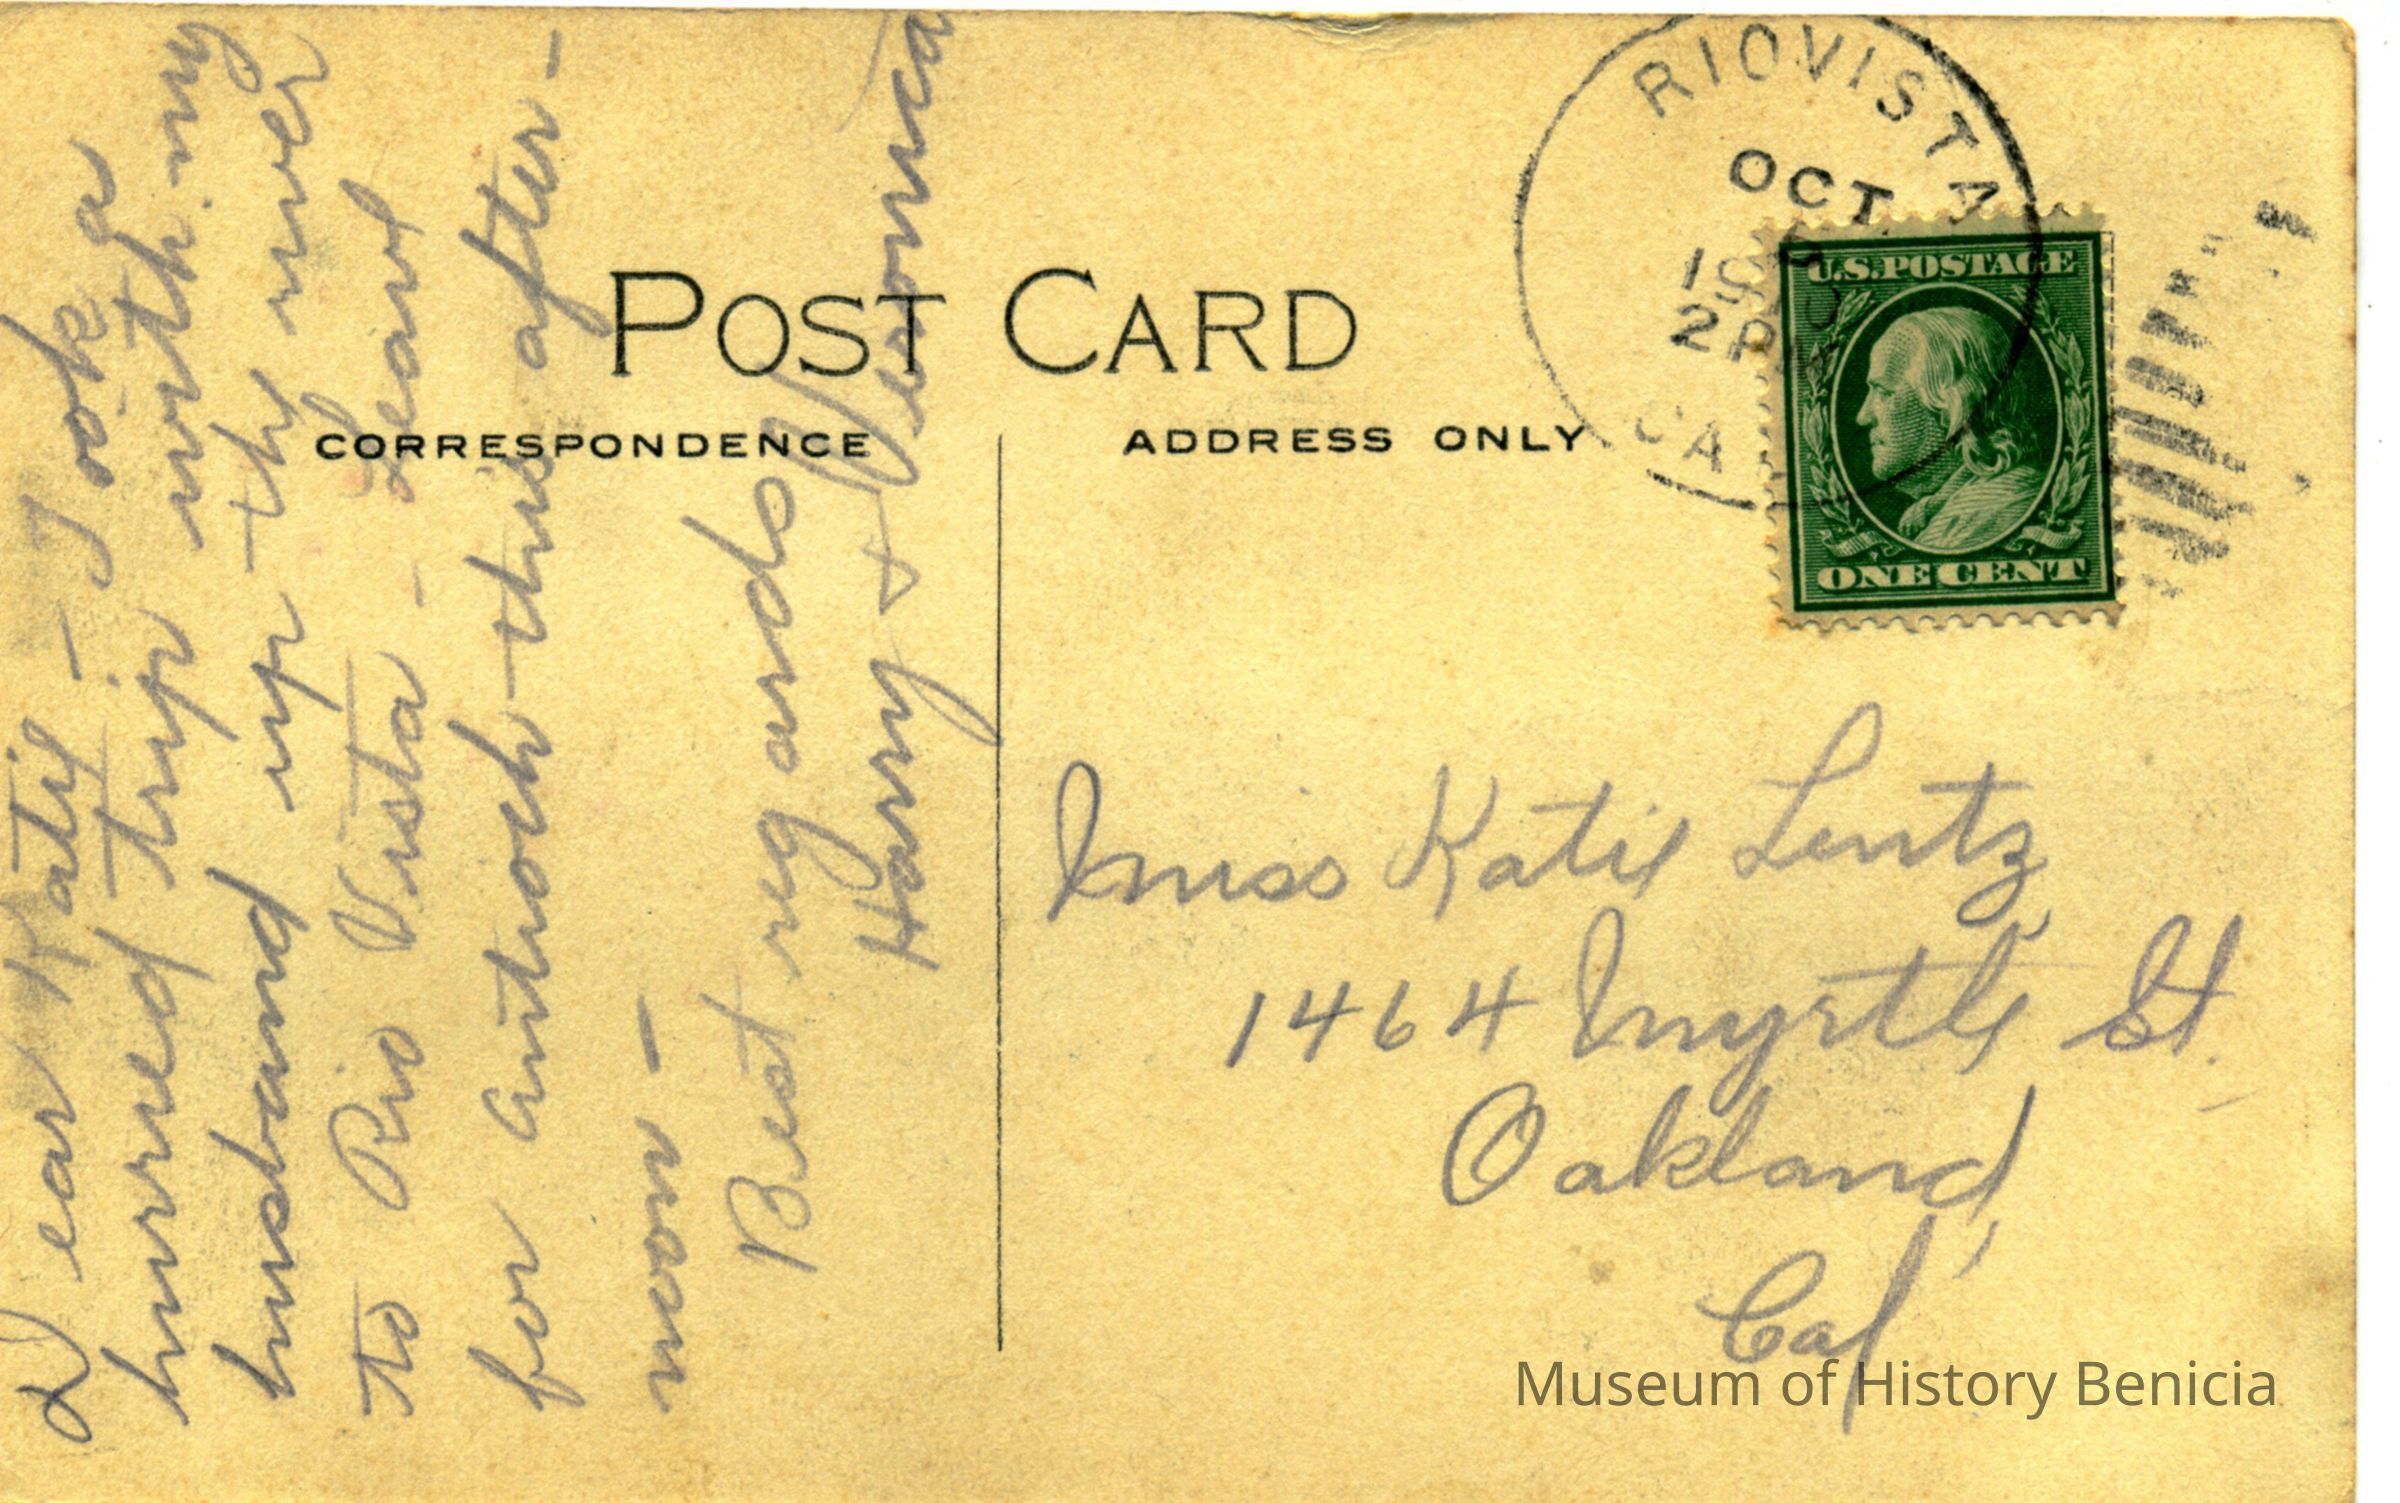 POST CARD
CORRESPONDENCE
ADDRESS ONLY
RIOVISTA
OCT
2 PM
CA
U.S. POSTAGE
ONE CENT
Dear Katie – Took a
hurried trip with my
husband up the river
to Rio Vista – Leave
for Antioch this after-
noon –
Best regards
Harry & Veronica
Miss Katie Lentz,
1464 Myrtle St.
Oakland,
Cal
Museum of History Benicia